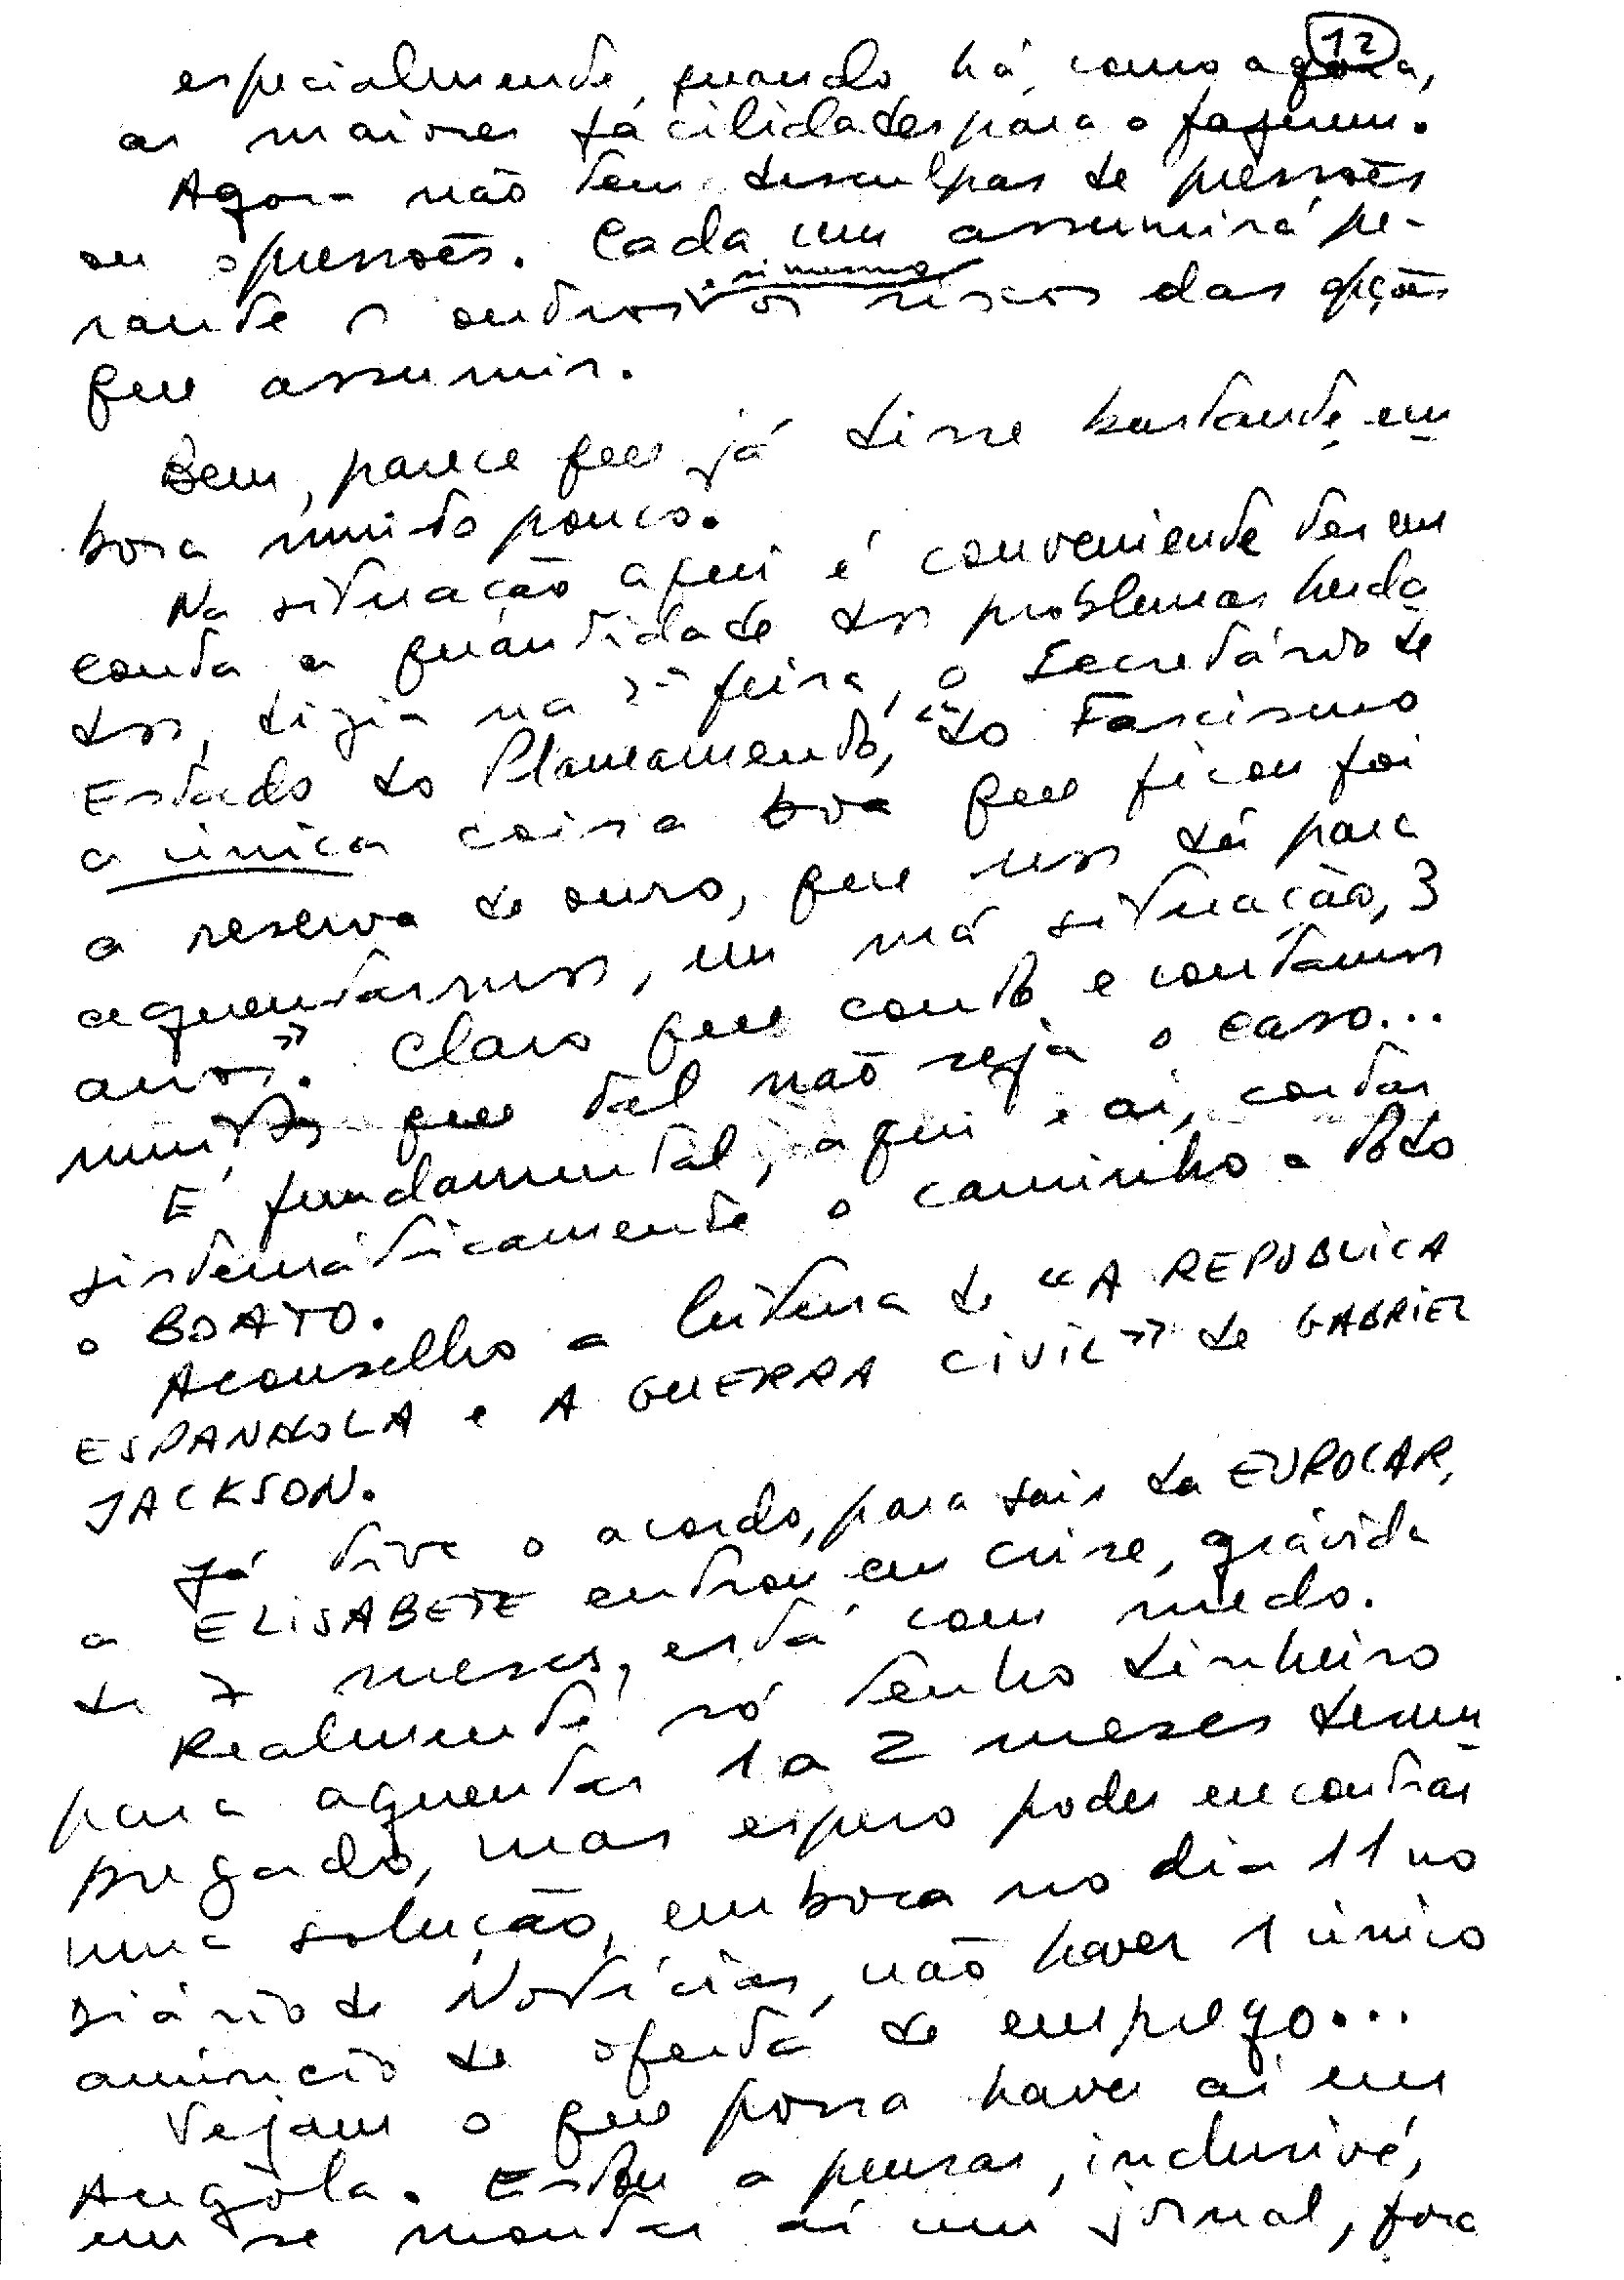 12
especialmente quando há, como agora,
as maiores facilidades para o fazerem.
Agora não tem desculpas de pressões
ou opressões. Cada um assumirá pe-
rante os outros e si mesmo os riscos das opções
que assumir.
Bem, parece que já disse bastante, em-
bora muito pouco.
Na situação aqui é conveniente ter em
conta a quantidade dos problemas herda-
dos, dizia na 2ª feira, o Secretário de
Estado do Planeamento, "do Fascismo
a única coisa boa que ficou foi
a reserva de ouro, que nos dá para
aguentarmos, em má situação, 3
anos". Claro que conto e contamos
muitos que tal não seja o caso...
É fundamental, aqui e aí, cortar
sistemáticamente o caminho a todo
o BOATO.
Aconselho a leitura de "A REPUBLICA
ESPANHOLA e A GUERRA CIVIL" de GABRIEL
JACKSON.
Já tive o acordo, para sair da EUROCAR,
a ELISABETE entrou em crise, grávida
de 7 meses, está com medo.
Realmente só tenho dinheiro
para aguentar 1 a 2 meses desem-
pregado, mas espero poder encontrar
uma solução, embora no dia 11 no
Diário de Notícias, não haver 1 único
anúncio de oferta de emprego...
Vejam o que possa haver aí em
Angola. Estou a pensar, inclusivé,
em se montar aí um jornal, fora